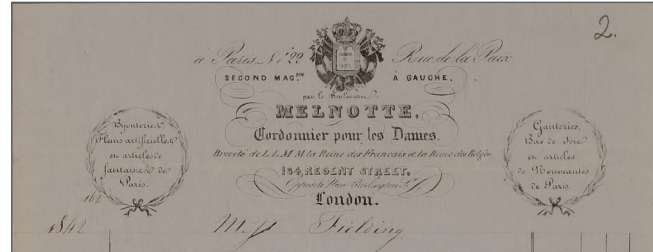 2.
à Paris, No. 22 Rue de la Paix
SECOND MAGin À GAUCHE,
par le Boulevard.
MELNOTTE,
Cordonnier pour les Dames.
Breveté de L.L.M.M. la Reine des Français et la Reine des Belges
164, REGENT STREET,
Opposite New Burlington St.
London.
Bijouteries
Fleurs artificielles
en articles de
fantaisies de
Paris.
Ganteries,
Bas de Soie
en articles
de Nouveautés
de Paris.
164
1842 Miss Fielding